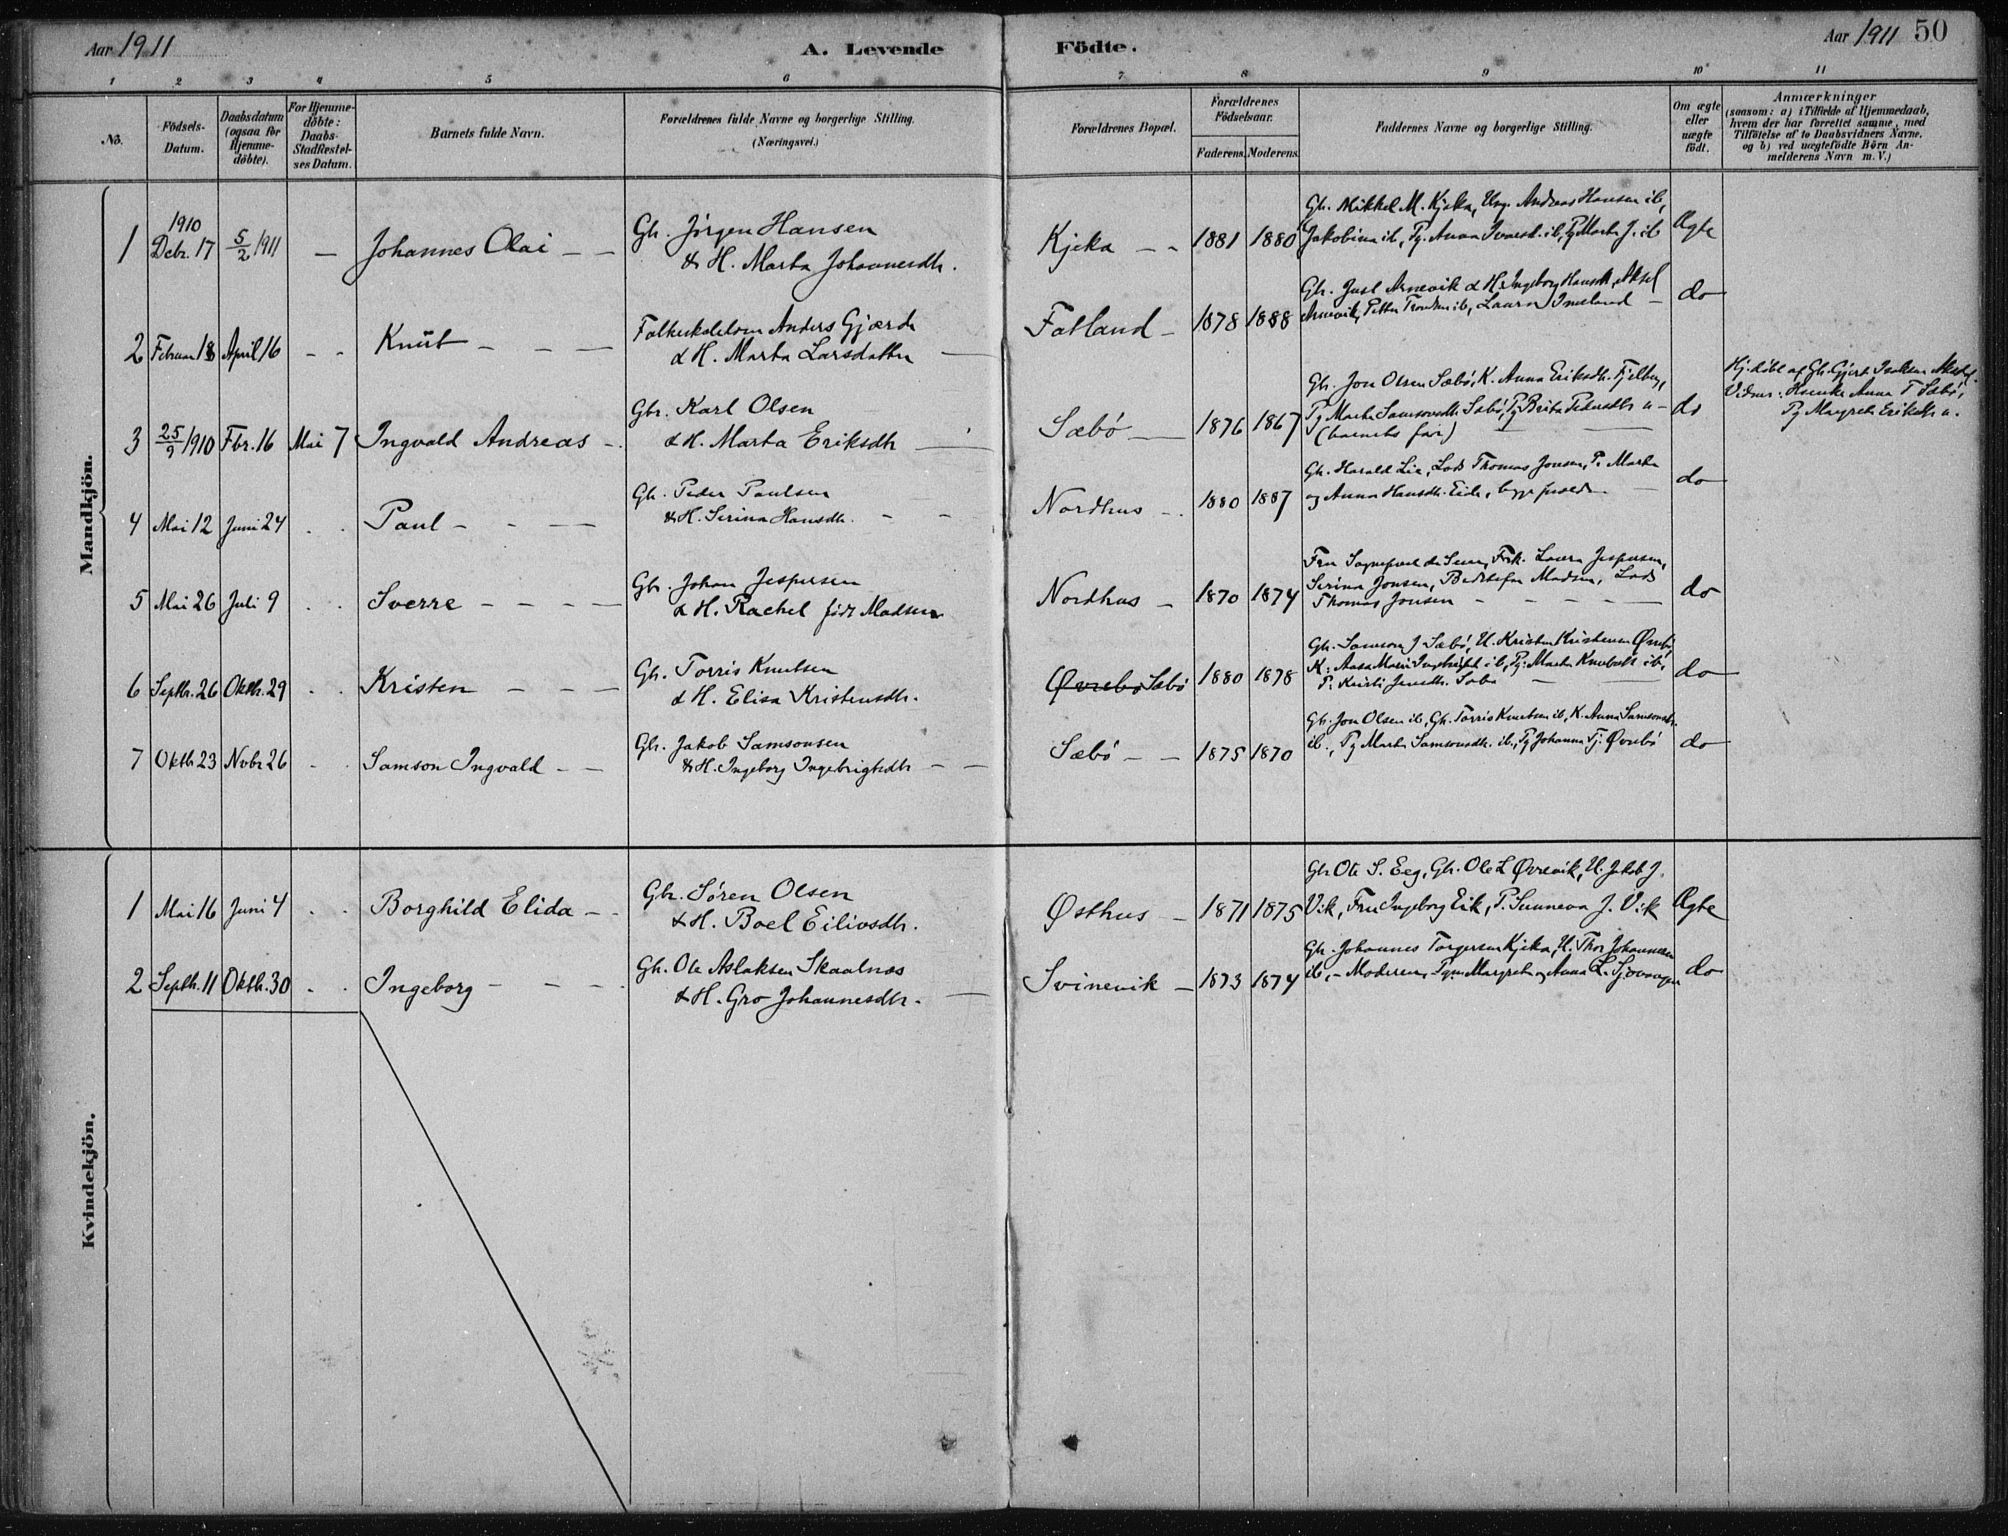 Aar 1911
A. Levende Födte.
Aar 1911 50
1 2 3 4 5 6 7 8 9 10 11
No.
Födsels-Datum.
Daabsdatum (ogsaa for Hjemme-döbte).
For Hjemme-döbte: Daabs-Stadfæstel-ses Datum.
Barnets fulde Navn.
Forældrenes fulde Navne og borgerlige Stilling.
(Næringsvei.)
Forældrenes Bopæl.
Forældrenes Födselsaar.
Faderens. Moderens.
Faddernes Navne og borgerlige Stilling.
Om ægte eller uægte födt.
Anmærkninger
(saasom: a) i Tilfælde af Hjemmedaab,
hvem der har forrettet samme, med
Tilföielse af to Daabsvidners Navne.
og b) ved uægtefödte Börn An-
melderens Navn m. V.)
Mandkjön.
1 1910 Debr. 17 5/2 1911 – Johannes Olai – –
Gbr. Jørgen Hansen
& H. Marta Johannesdtr.
Kjeka – – 1881 1880
Gbr. Mikkel M. Kjeka, Ung. Andreas Hansen ib,
Jakobina ib, Pg. Anna Ivarsd. ib, Pg Marta J. ib
Ægte
2 Februar 18 April 16 – – Knut – – –
Folkeskolelærer Anders Gjærde
& H. Marta Larsdatter
Fatland – 1878 1888
Gbr. Juel Arnevik & H. Ingeborg Hansdt, Aksel
Arnevik, Petter ib, Laura Imeland –
do
3 25/9 1910 Fbr. 16 Mai 7 Ingvald Andreas –
Gbr. Karl Olsen
& H. Marta Eriksdtr
Sæbø – 1876 1867
Gbr. Jon Olsen Sæbø, K. Anna Eriksdtr. Fjelberg,
Pg Marta Samsonsdtr Sæbø, Pg Brita Pedersdtr u –
(barnets far)
do
Hj. døbt af Gbr. Gjert Isaksen
Vidner: Anna T Sæbø,
Pg Margrete Eriksdtr u.
4 Mai 12 Juni 24 . . Paul – – –
Gbr. Peder Paulsen
& H. Serina Hansdtr. – –
Nordhus – . 1880 1887
Gbr. Harald Lie, Lods Thomas Jonsen, P. Marta
og Anna Hansdtr. Eide,
do
5 Mai 26 Juli 9 . . Sverre – – – –
Gbr. Johan Jespersen
& H. Rachel født Madsen
Nordhus – 1870 1874
Fru Frk. Laura Jespersen,
Serina Jonsen, Bedstefar Madsen, Lods
Thomas Jonsen – – – –
do
6 Septbr. 26 Oktbr. 29 . . Kristen – – –
Gbr. Torris Knutsen
& H. Elisa Kristensdtr.
Øvrebø Sæbø 1880 1878
Gbr. Samson J Sæbø, U. Kristen Kristensen Øvrebø,
K. Anna Marie ib, Pg. Marta Knutsdtr ib,
P. Kristi Jensdtr. Sæbø –
do
7 Oktb 23 Nvbr 26 . . Samson Ingvald – –
Gbr. Jakob Samsonsen
& H. Ingeborg Ingebrigtsdtr – –
Sæbø – – 1875 1870
Gbr. Jon Olsen ib, Gbr. Torris Knutsen ib, K. Anna Samsonsdtr.
ib., Pg Marta Samsonsdtr. ib, Pg Johanna Tj. Øvrebø
do
Kvindekjön.
1 Mai 16 Juni 4 . . Borghild Elida – –
Gbr. Søren Olsen
& H. Boel Eilivsdtr.
Østhus – 1871 1875
Gbr Ole S. Eeg, Gbr. Ole L Øvrevik, U. Jakob J.
Vik, Fru Ingeborg Eik, P. Sunneva J. Vik
Ægte
2 Septbr. 11 Oktbr. 30 . . Ingeborg – – –
Gbr. Ole Aslaksen Skaalnæs
& H. Gro Johannesdtr. –
Svinevik – 1873 1874
Gbr. Johannes Torgersen Kjeka, U. Thor Johannesen
ib, – Moderen, Pgn. Margreta og Anna L.
do